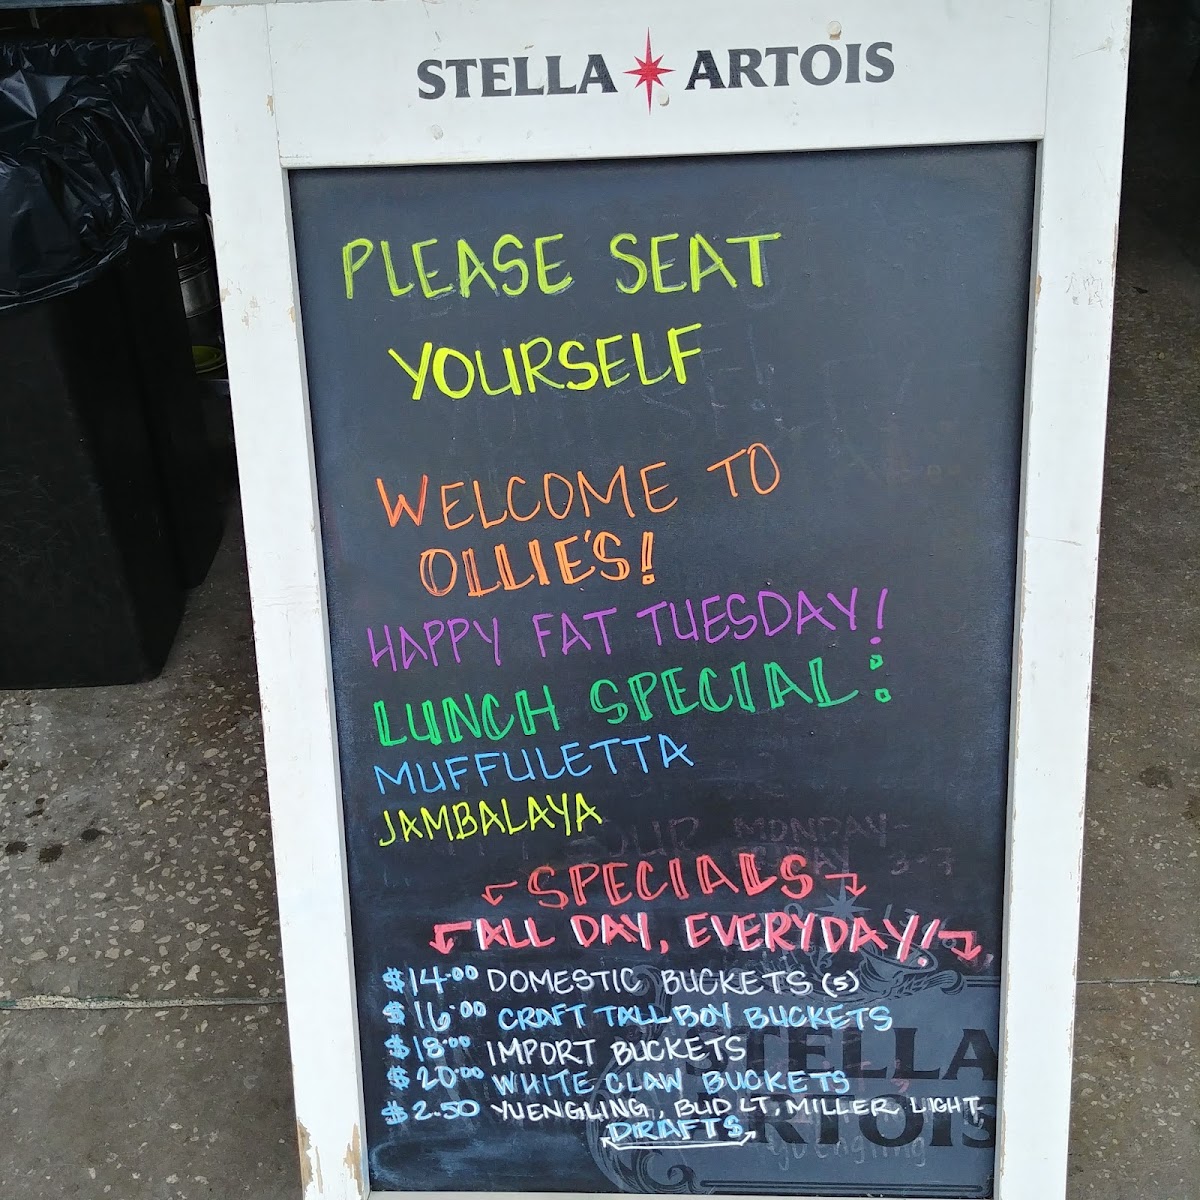 STELLA ARTOIS
PLEASE SEAT
YOURSELF
WELCOME TO
OLLIE'S!
HAPPY FAT TUESDAY!
LUNCH SPECIAL:
MUFFULETTA
JAMBALAYA
HOUR MONDAY-
3-7
SPECIALS
ALL DAY, EVERYDAY!
$14.00 DOMESTIC BUCKETS (5)
$16.00 CRAFT TALLBOY BUCKETS
$18.00 IMPORT BUCKETS
$20.00 WHITE CLAW BUCKETS
$2.50 YUENGLING, BUD LT, MILLER LIGHT
DRAFTS
STELLA
ARTOIS
yuengling